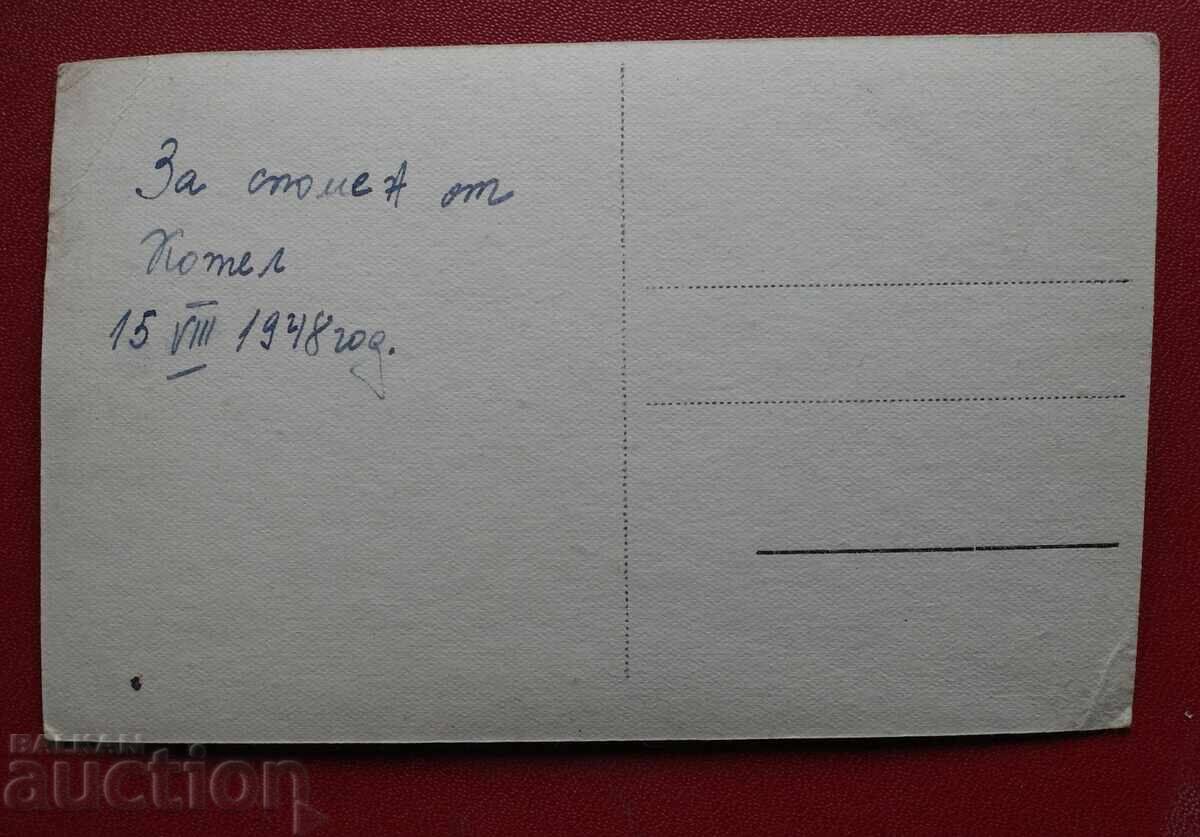 За спомен от
Котел
15 VIII 1948 год.
BALKAN
auction